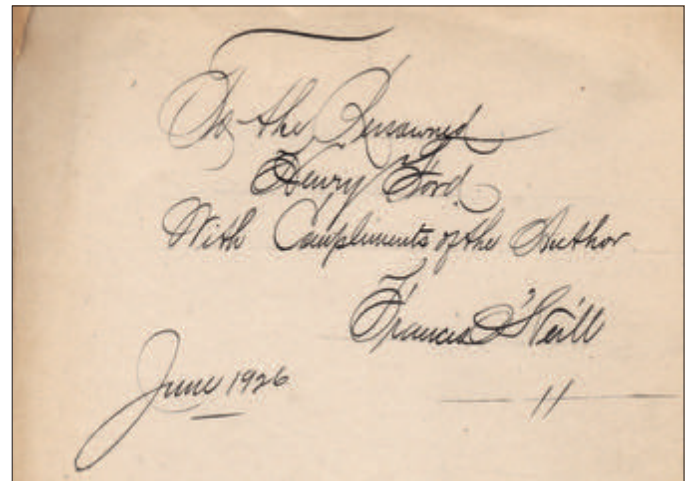 To the Renowned
Henry Ford.
With Compliments of the Author
Francis O'Neill
June 1926